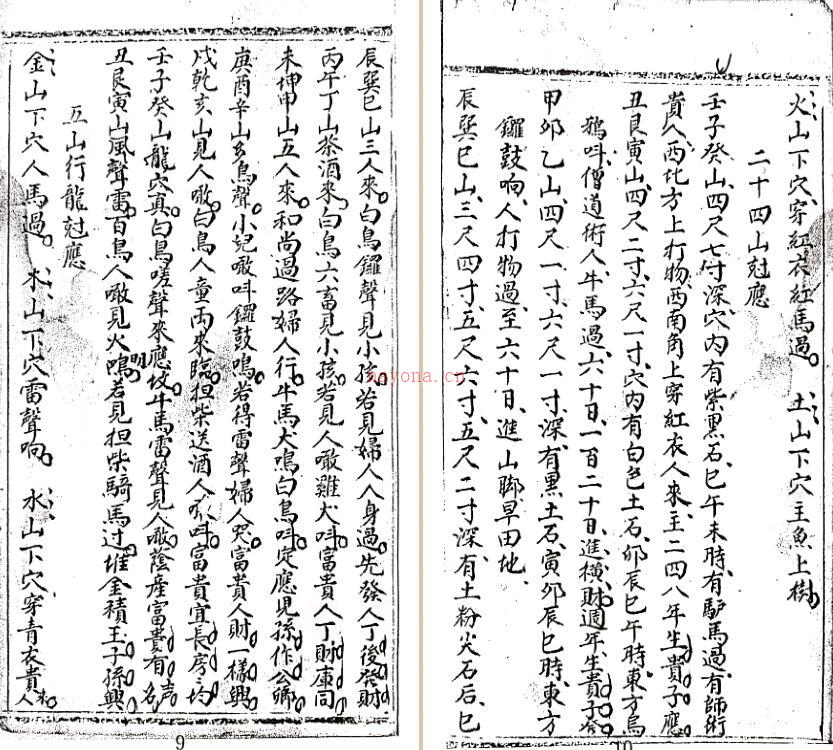 辰巽巳山三人來白鳥鑼聲見小孩若見婦人人身過先發人丁後發財
丙午丁山茶酒來白鳥六畜見小孩若見人噉雞犬呌富貴人丁財庫同
未坤申山五人來和尚過路婦人行牛馬犬鳴白鳥呌定應児孫作公卿
庚酉辛山玄鳥聲小兒噉呌鑼鼓鳴若得雷聲婦人哭富貴人財一樣興
戌乾亥山見人噉白鳥人童雨來臨担柴送酒人呌富貴宜長房均
壬子癸山龍穴真白鳥嗟聲來應坟牛馬雷聲見人噉蔭產富貴有名声
丑艮寅山風聲雷百鳥人噉見火鳴明若見担柴騎馬过堆金積玉子孫興
五山行龍尅應
金山下穴人馬過 木山下穴雷聲响 水山下穴穿青衣貴人來
9
火山下穴穿紅衣紅馬過 土山下穴主魚上樹
二十四山尅應
壬子癸山四尺七寸深穴內有紫黑石巳午未時有馿馬過有師術
貴人西北方上打物西南角上穿紅衣人來主二四八年生貴子應
丑艮寅山四尺二寸六尺一寸穴內有白色土石卯辰巳午時東方烏
鴉呌僧道術人牛馬過六十日一百二十日進橫財週年生貴子發
甲卯乙山四尺一寸六尺一寸深有黑土石寅卯辰巳時東方
鑼鼓响人打物過至六十日進山脚早田地
辰巽巳山三尺四寸五尺六寸五尺二寸深有土粉尖石后巳
10
nayona.cn